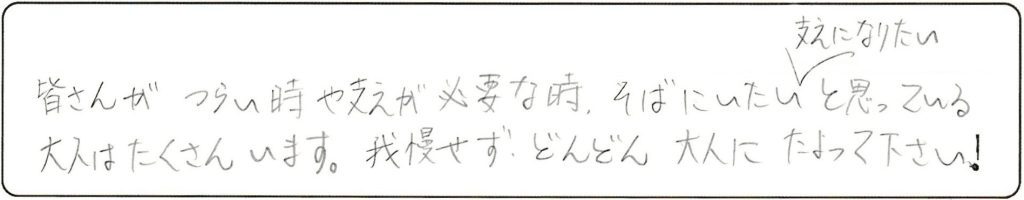 支えになりたい
皆さんが つらい時や支えが必要な時、そばにいたいと思っている
大人はたくさんいます。我慢せず、どんどん 大人に たよって下さい!